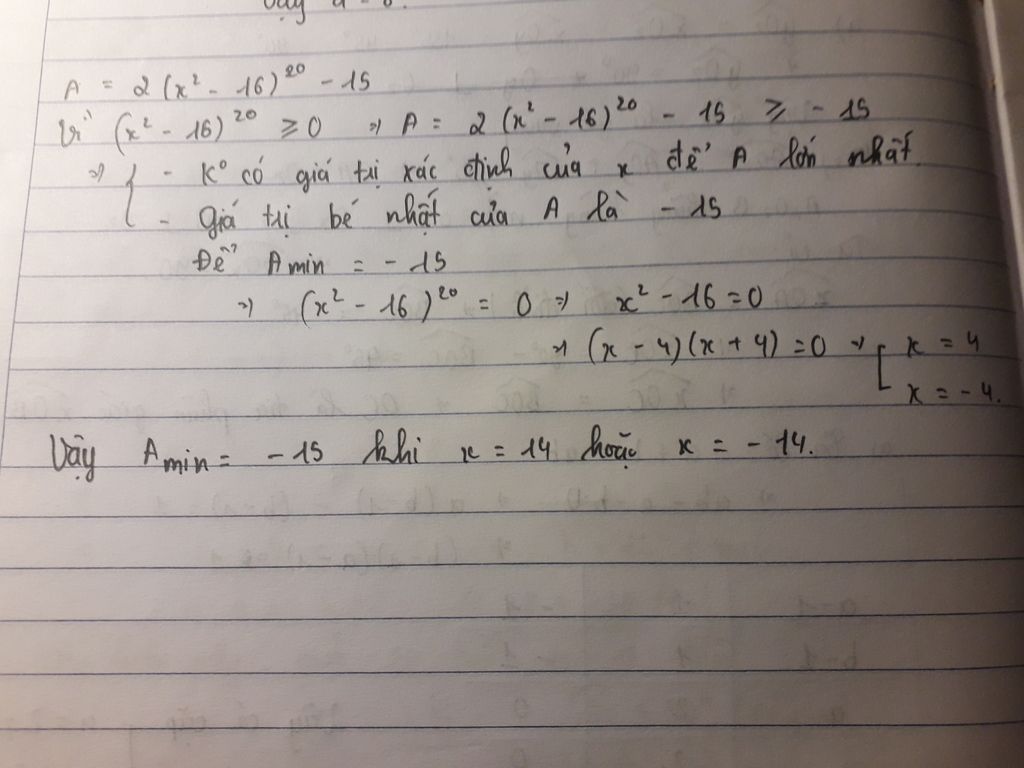 Vậy a = 0.
A = 2 (x² - 16)²⁰ - 15
Vì (x² - 16)²⁰ ≥ 0 => A = 2 (x² - 16)²⁰ - 15 ≥ - 15
=> { - K° có giá trị xác định của x để A lớn nhất.
- Giá trị bé nhất của A là - 15
Để A min = - 15
=> (x² - 16)²⁰ = 0 => x² - 16 = 0
=> (x - 4)(x + 4) = 0 => [ x = 4
x = - 4.
Vậy A min = - 15 khi x = 14 hoặc x = - 14.